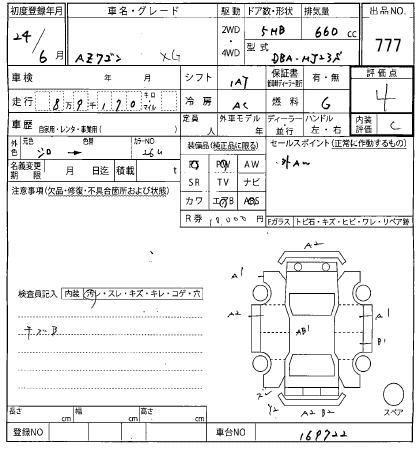 初度登録年月 車名・グレード 駆動 ドア数・形状 排気量 出品NO
24年 6月 AZワゴン XG 2WD ・ 4WD 5HB 660 cc 777
型式 DBA-MJ23S
車検 年 月 シフト 1AT 保証書 有・無 評価点 4
走行 8万9千170 キロ・マイル 冷房 AC 燃料 G
車歴 自家用・レンタ・事業用( ) 定員 人 外車モデル 年 ディーラー・並行 ハンドル 左・右 内装評価 C
外色 元色 シロ → 色替 カラーNO 26U 装備品(純正品に限る) セールスポイント(正常に作動するもの)
名義変更期限 月 日迄 積載 t PS PW AW
SR TV ナビ
カワ エアB ABS
注意事項(欠品・修復・不具合箇所および状態)
R券 円 Fガラス トビ石・キズ・ヒビ・ワレ・リペア跡
A2
A1
A2 AB1 A1
B1
検査員記入 内装 汚レ・スレ・キズ・キレ・コゲ・穴
キズB
Y2 A2 B2 スペア
長さ cm 幅 cm 高さ cm
登録NO 車台NO 169722